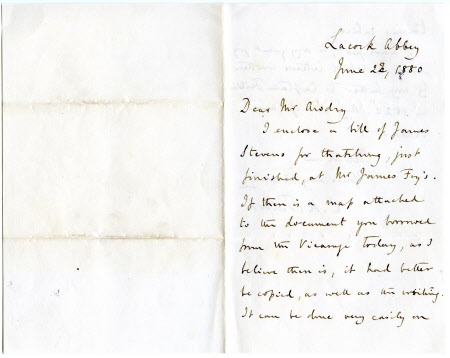 Lacock Abbey
June 22, 1880
Dear Mr Awdry
I enclose a bill of James
Stevens for thatching, just
finished, at Mr James Foy's.
If there is a map attached
to the document you borrowed
from the Vicarage today, as I
believe there is, it had better
be copied, as well as the writing.
It can be done very easily on